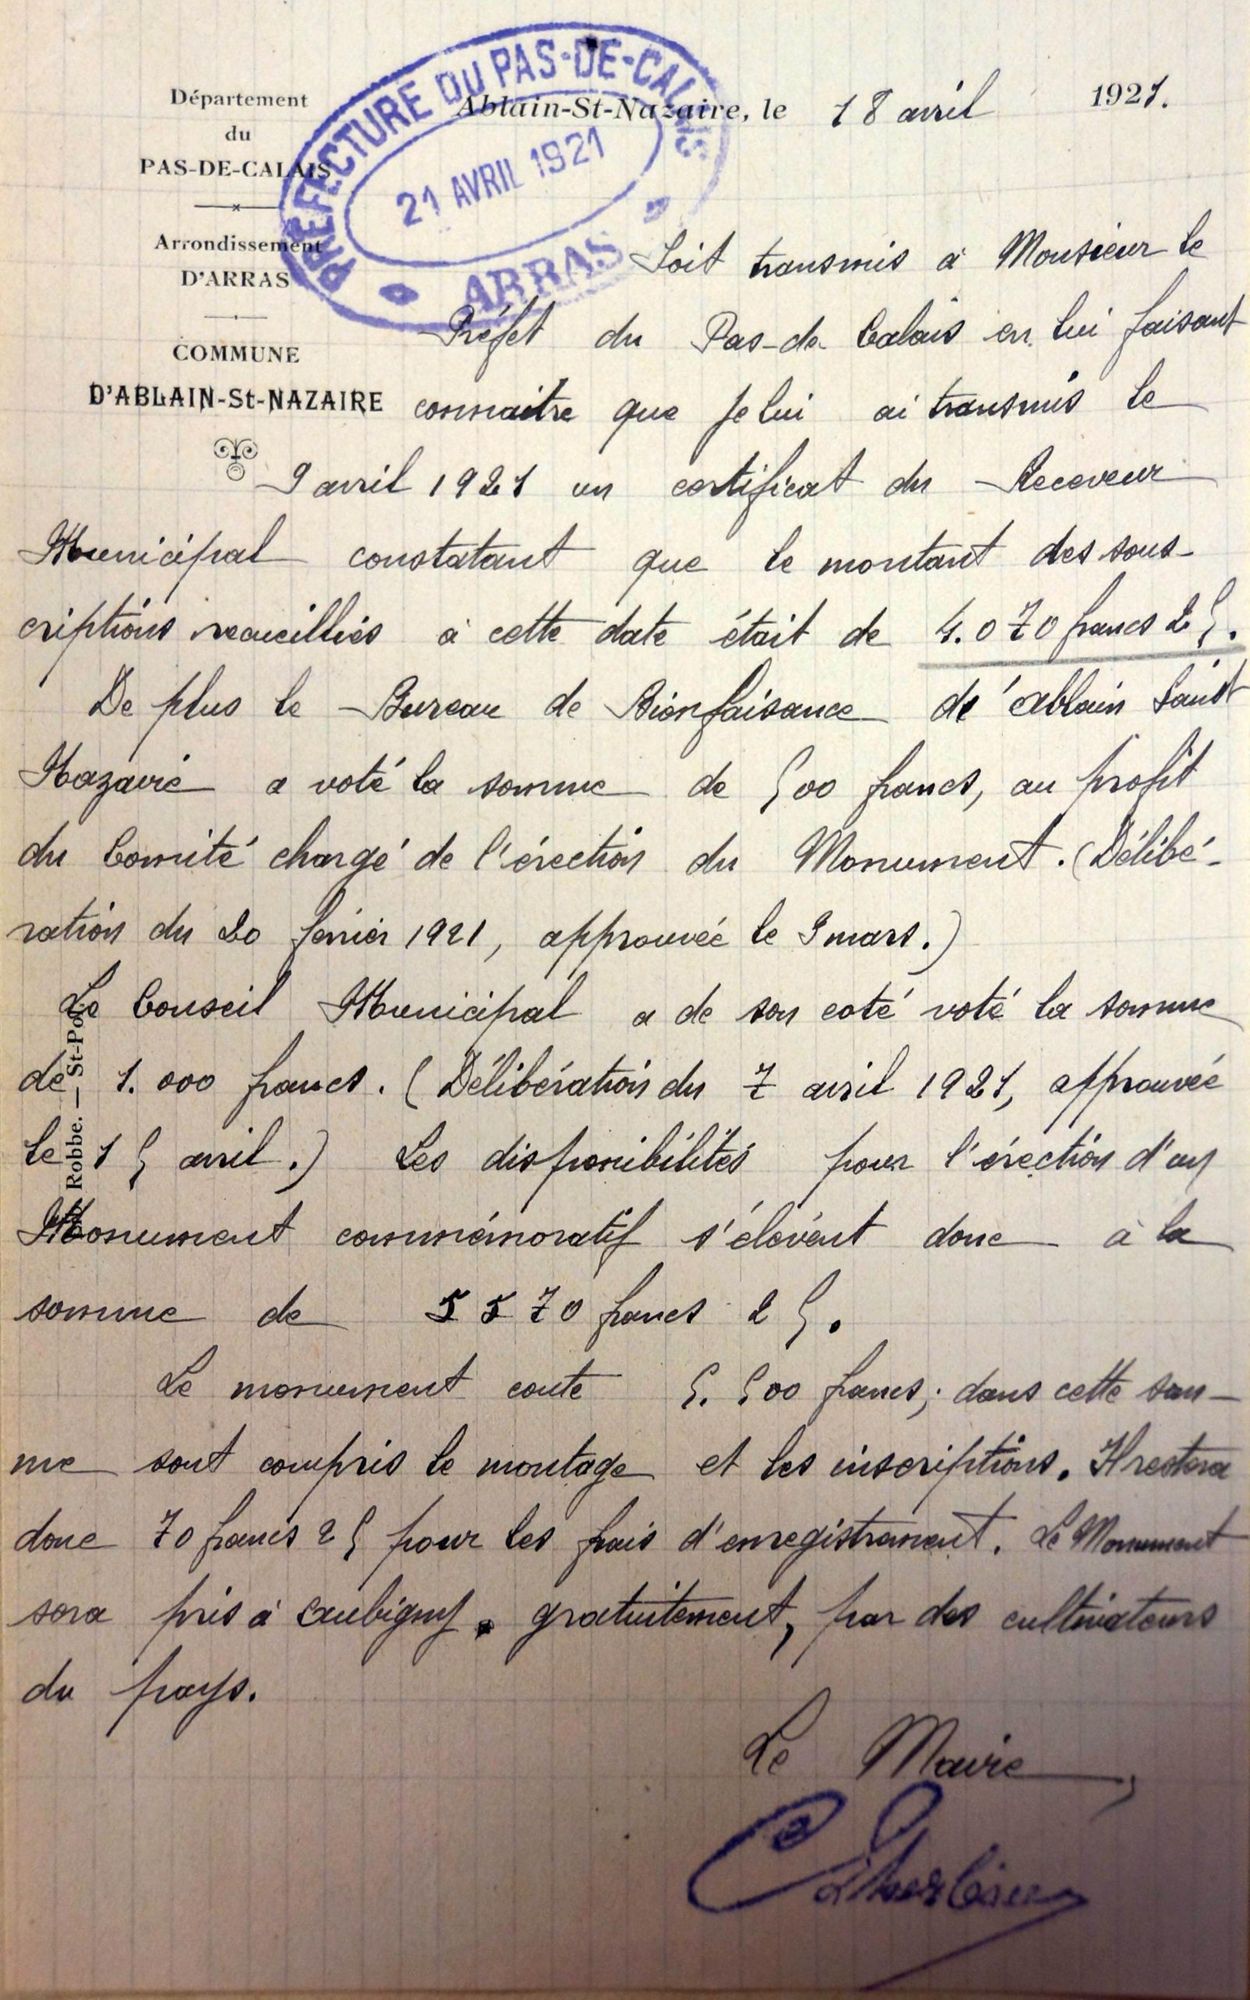 Département
du
PAS-DE-CALAIS
Arrondissement
D'ARRAS
COMMUNE
D'ABLAIN-St-NAZAIRE
PRÉFECTURE DU PAS-DE-CALAIS
21 AVRIL 1921
ARRAS
Ablain-St-Nazaire, le 18 avril 1921.
Soit transmis à Monsieur le
Préfet du Pas-de Calais en lui faisant
connaitre que je lui ai transmis le
9 avril 1921 un certificat du Receveur
Municipal constatant que le montant des sous-
criptions recueillies à cette date était de 4.070 francs 25.
De plus le Bureau de Bienfaisance de' Ablain Saint
Nazaire a voté la somme de 500 francs, au profit
du Comité chargé de l'érection du Monument. (Délibé-
ration du 20 février 1921, approuvée le 9 mars.)
Le Conseil Municipal a de son coté voté la somme
de 1.000 francs. (Délibération du 7 avril 1921, approuvée
le 15 avril.) Les disponibilités pour l'érection d'un
Monument commémoratif s'élèvent donc à la
somme de 5570 francs 25.
Le monument coute 5.500 francs; dans cette som-
me sont compris le montage et les inscriptions. Il restera
donc 70 francs 25 pour les frais d'enregistrement. Le Monument
sera pris à Aubigny, gratuitement, par des cultivateurs
du pays.
Le Maire,
Robbe. — St-Pol